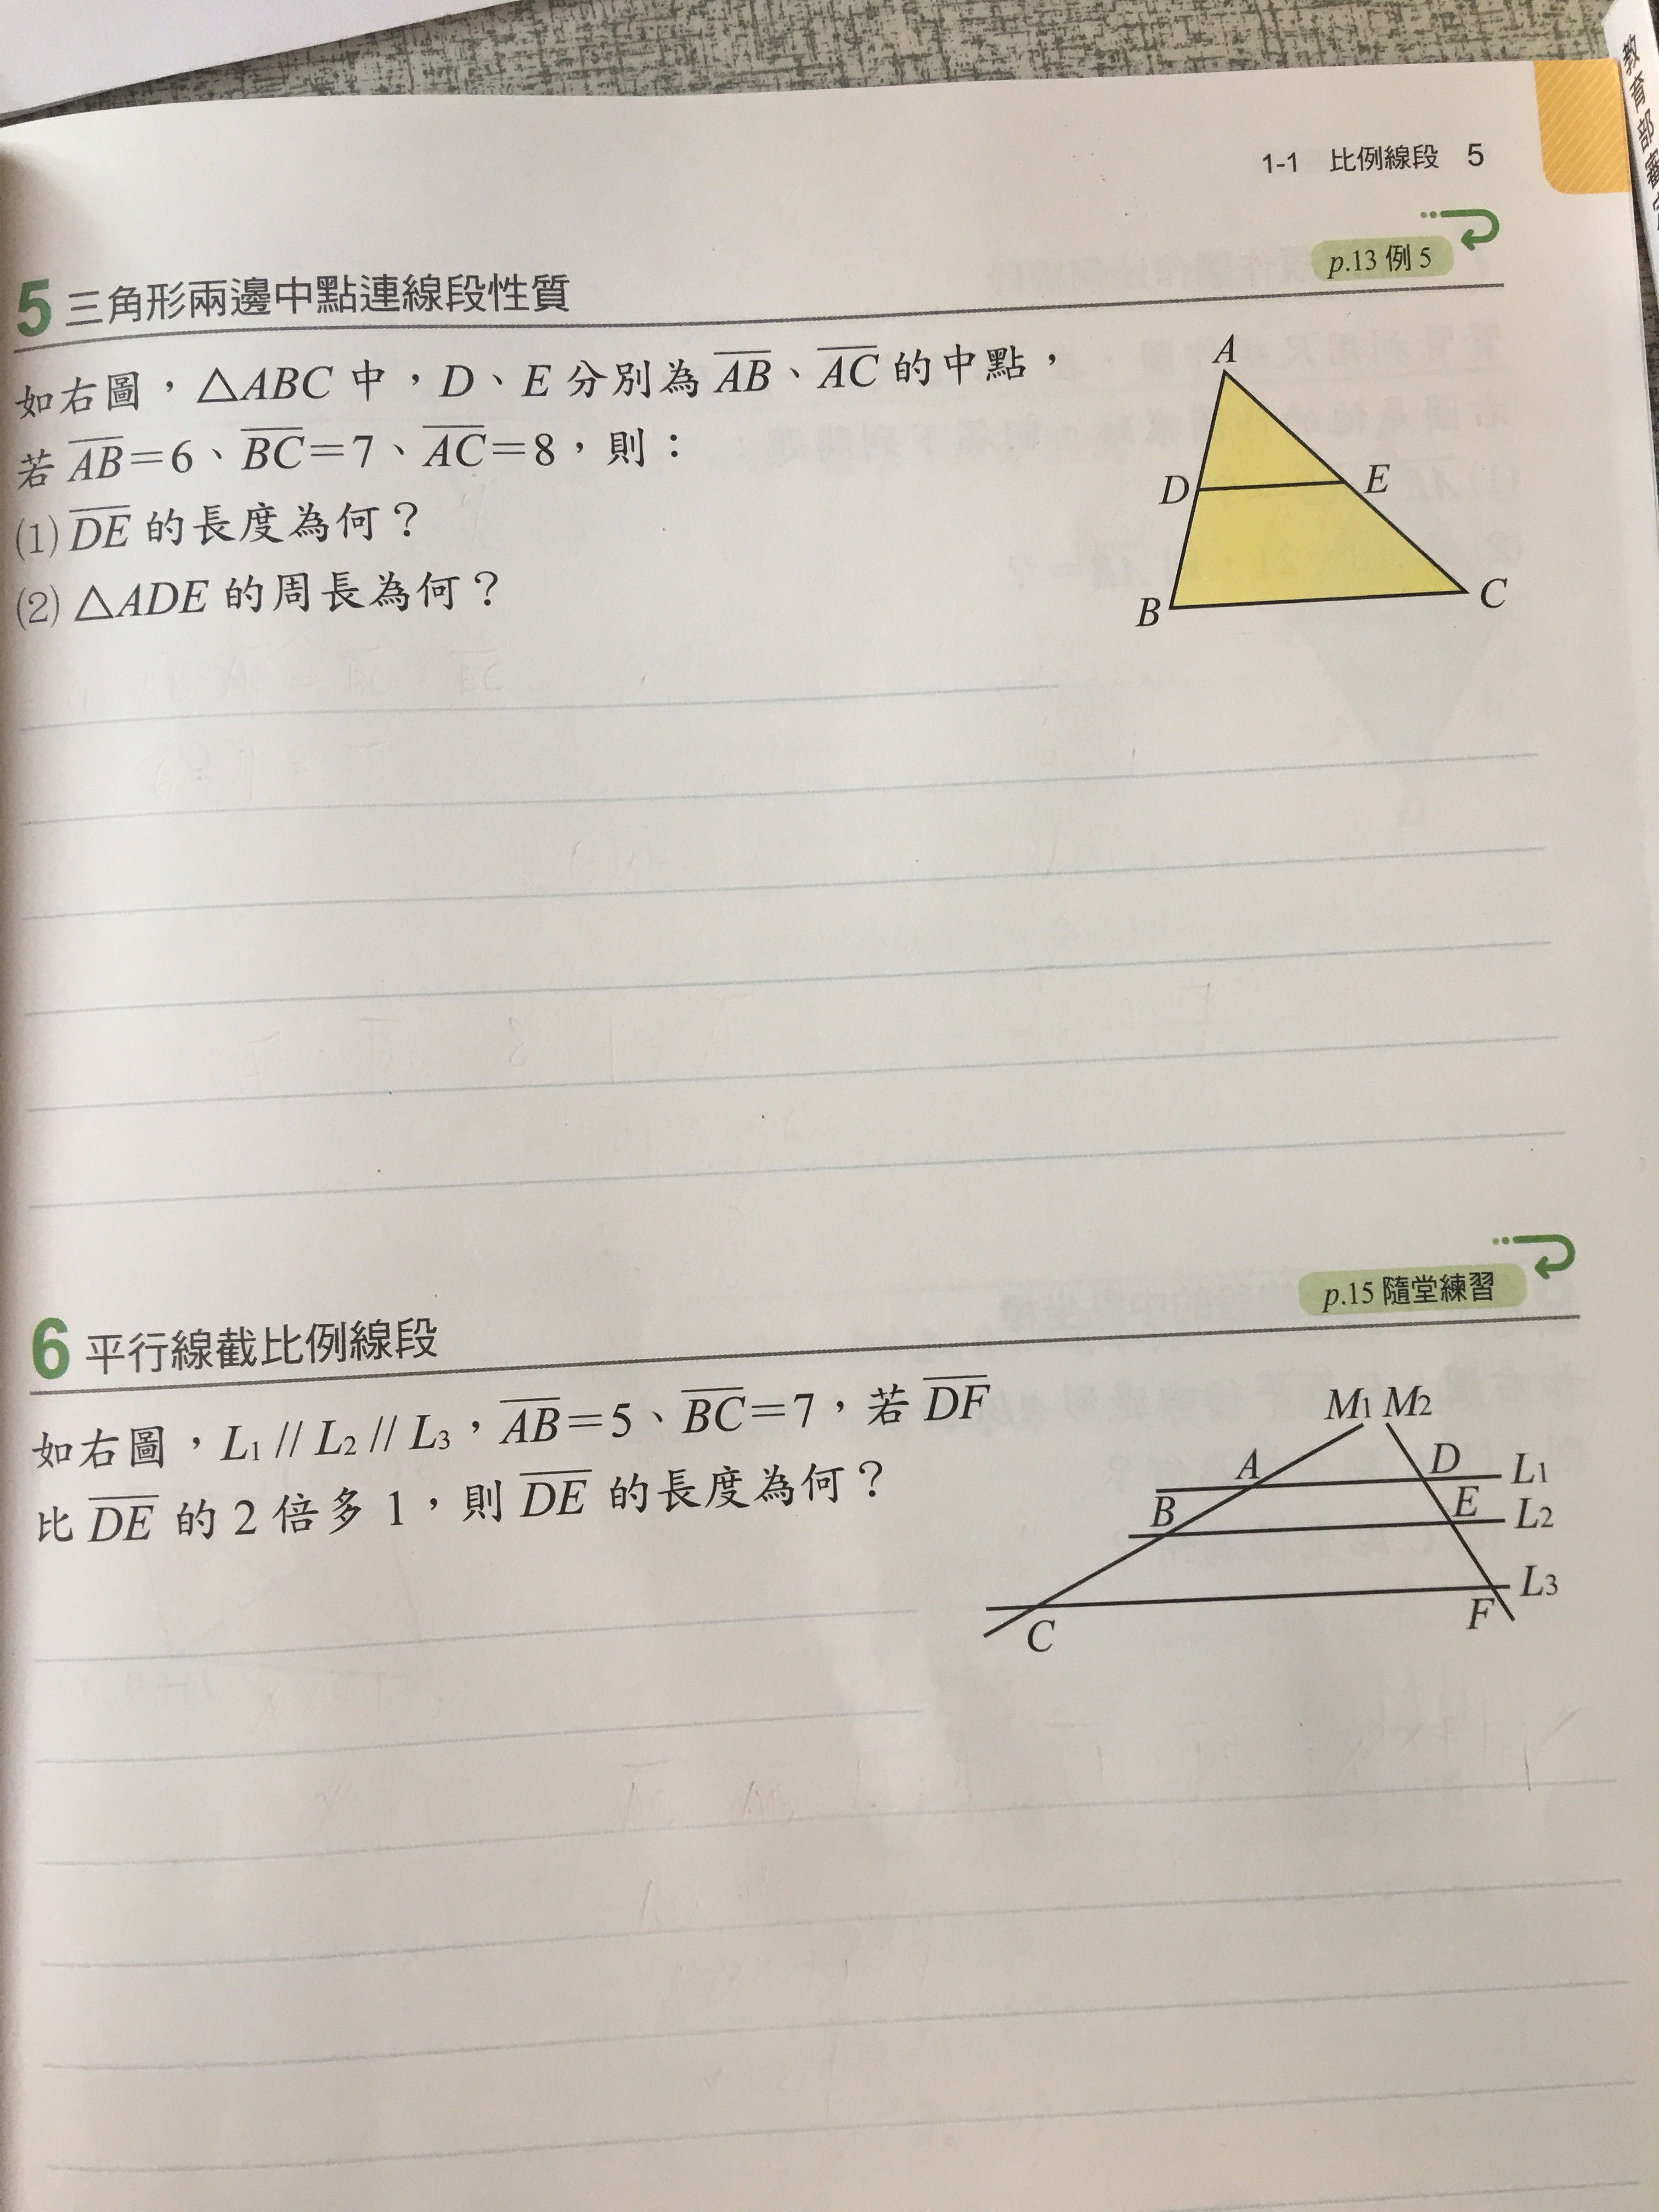 教育部審
1-1 比例線段 5
p.13 例 5
5 三角形兩邊中點連線段性質
如右圖，△ABC 中，D、E 分別為 AB、AC 的中點，
若 AB＝6、BC＝7、AC＝8，則：
(1) DE 的長度為何？
(2) △ADE 的周長為何？
A
D
E
B
C
p.15 隨堂練習
6 平行線截比例線段
如右圖，L1 // L2 // L3，AB＝5、BC＝7，若 DF
比 DE 的 2 倍多 1，則 DE 的長度為何？
M1 M2
A
D
L1
B
E
L2
L3
C
F